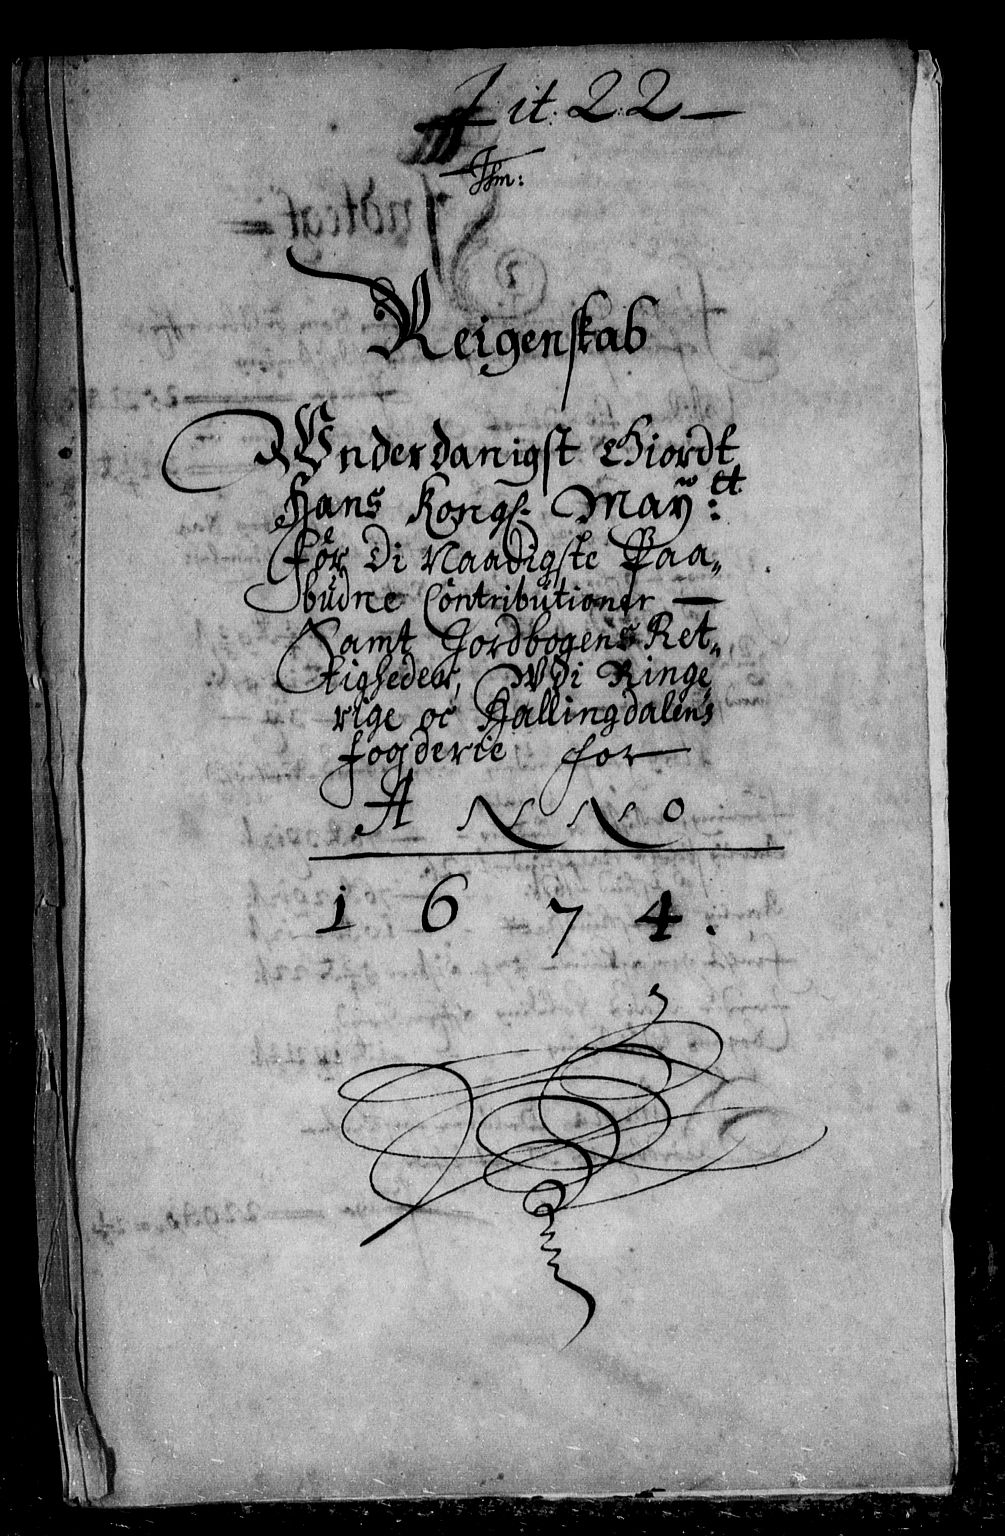 Lit. 22
Reigenskab
Vnderdanigst Ghiordt
Hans Kongl. May:tt
För Di Naadigste Paa„
budne Contributioner —
Samt Jordbogens Ret„
tigheder, Vdi Ringe
rige oc Hallingdalens
fogderie for
ANNO
1674.